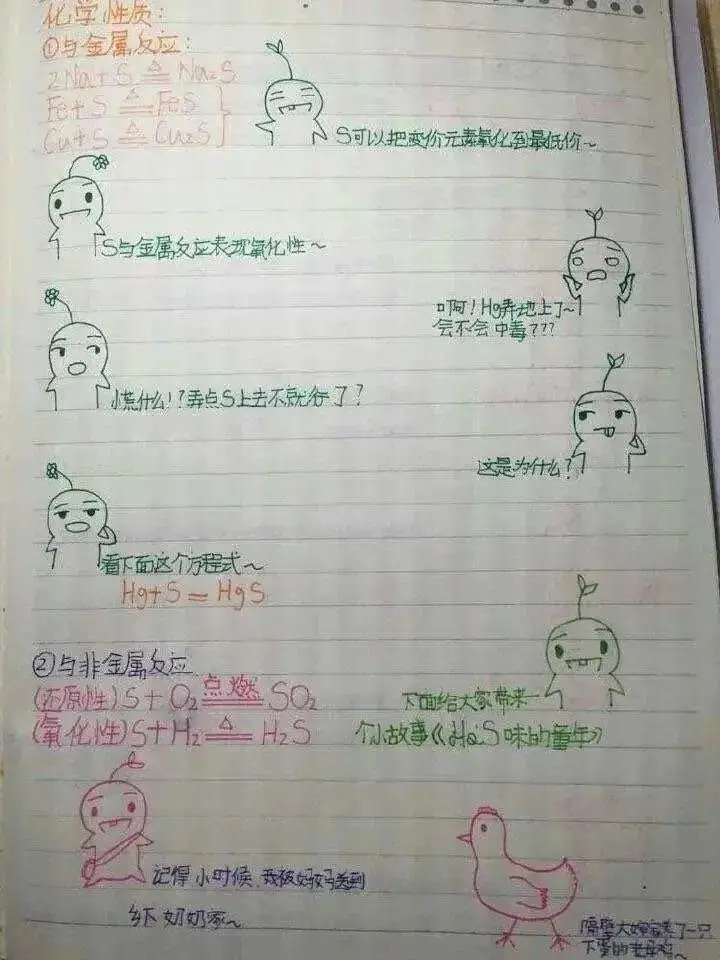 化学性质：
①与金属反应：
2Na+S △ Na₂S
Fe+S △ FeS
Cu+S △ Cu₂S
S可以把变价元素氧化到最低价～
S与金属反应表现氧化性～
啊！Hg弄地上了～
会不会中毒???
慌什么!?弄点S上去不就行了？
这是为什么？
看下面这个方程式～
Hg+S = HgS
②与非金属反应
(还原性)S+O₂ 点燃 SO₂
(氧化性)S+H₂ △ H₂S
下面给大家带来一
个小故事《H₂S味的童年》
记得小时候,我被妈妈送到
乡下奶奶家～
隔壁大婶家养了一只
下蛋的老母鸡～